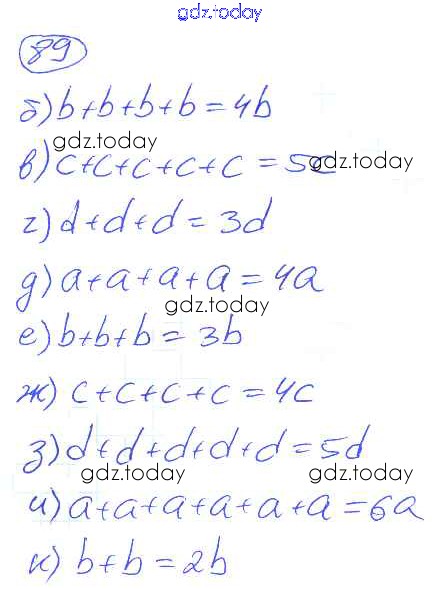 gdz.today
89
б) b+b+b+b=4b
gdz.today
в) c+c+c+c+c=5c gdz.today
г) d+d+d=3d
д) a+a+a+a=4a
gdz.today
е) b+b+b=3b
ж) c+c+c+c=4c
з) d+d+d+d+d=5d
gdz.today gdz.today
и) a+a+a+a+a+a=6a
к) b+b=2b